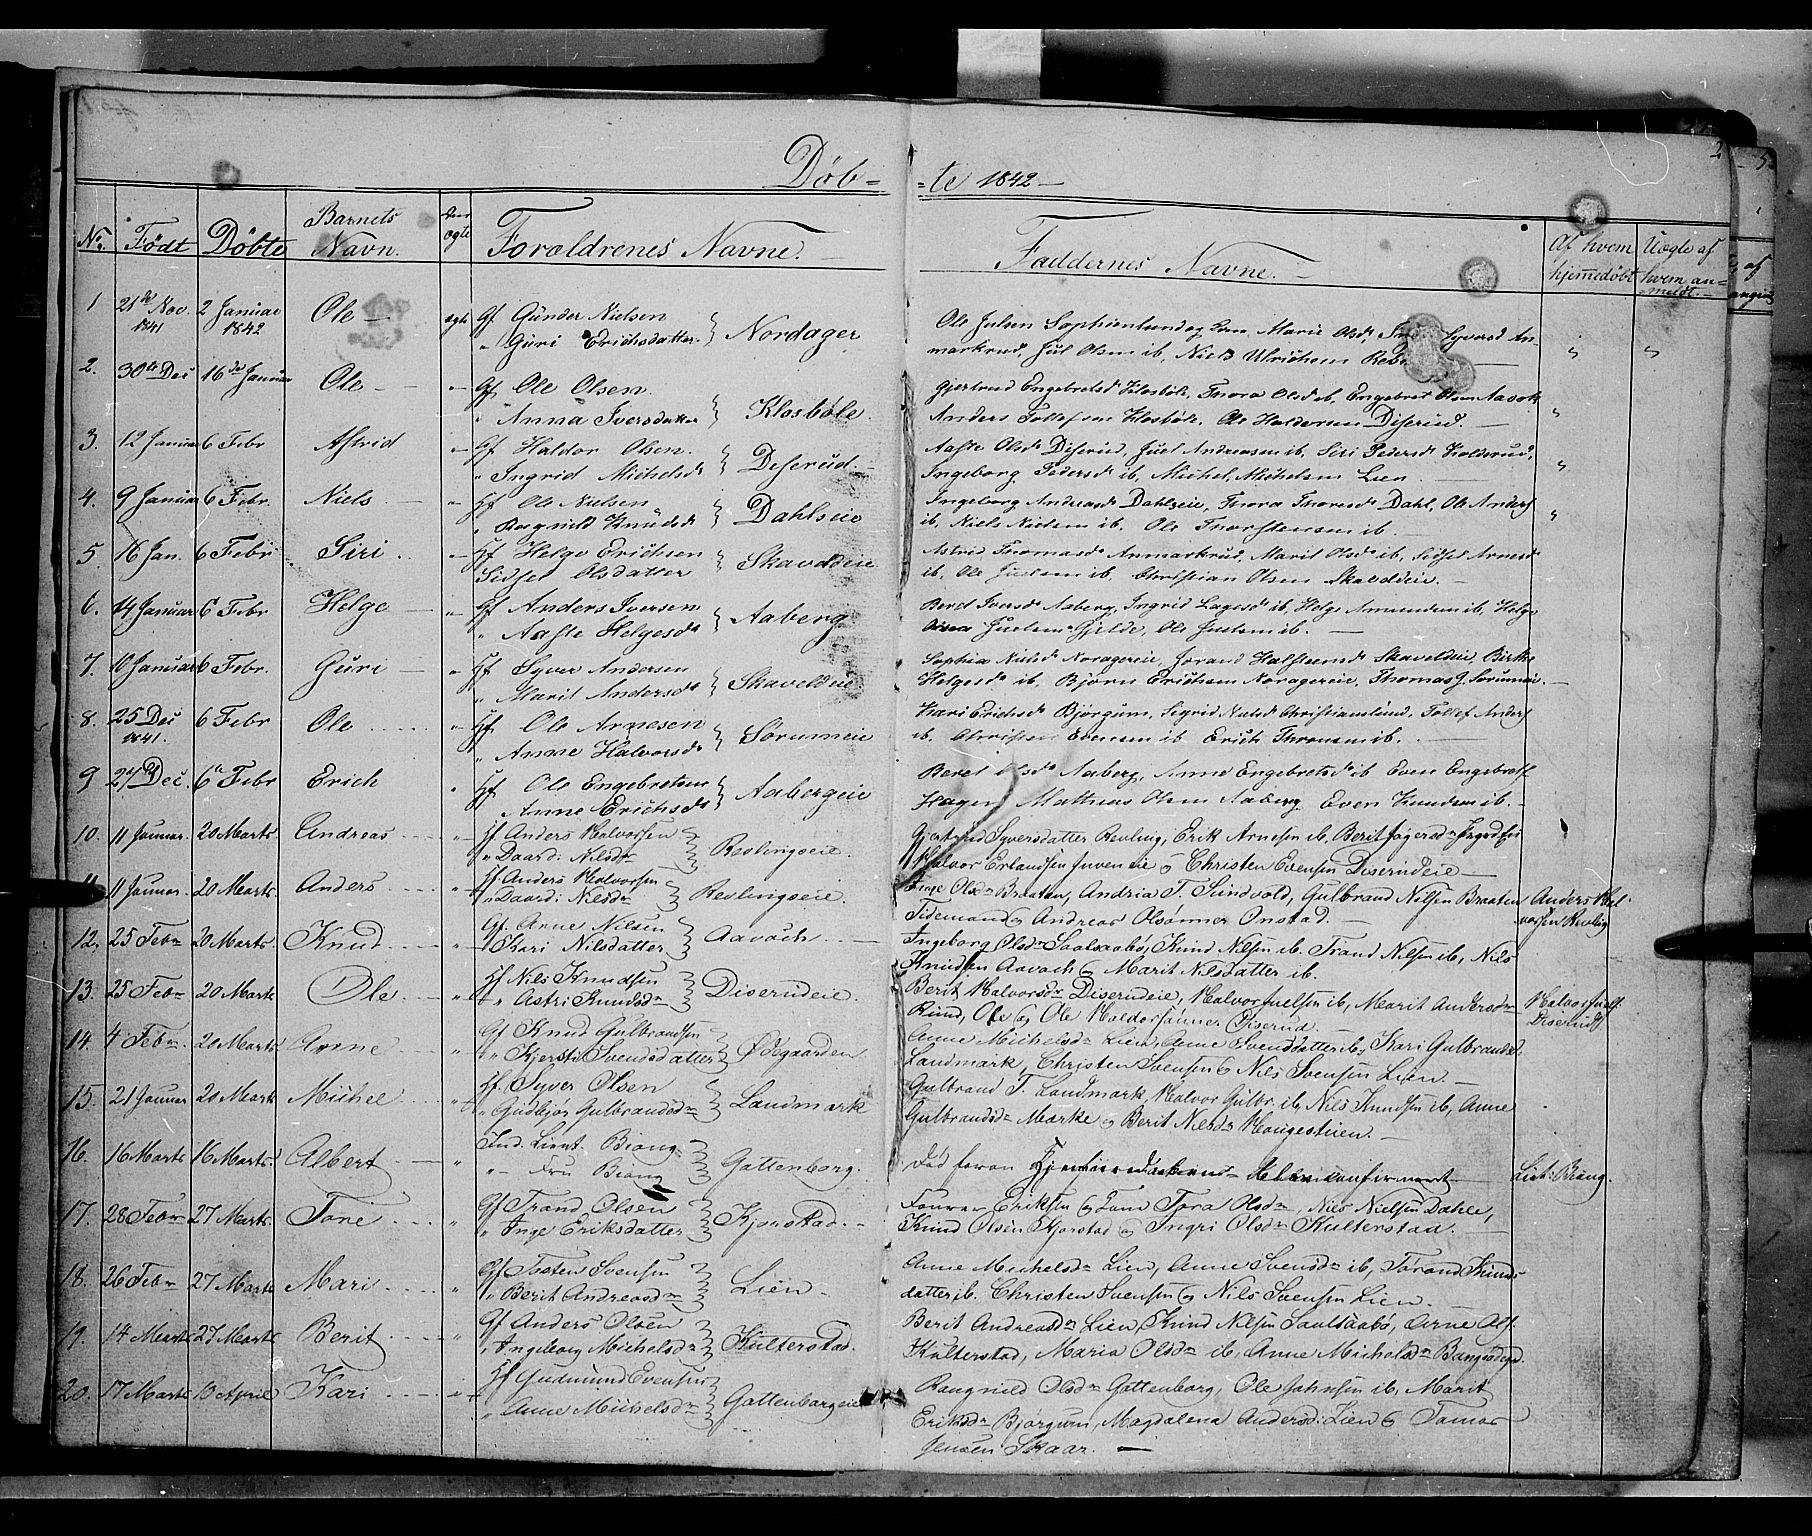 Döb- -te 1842 -
2
No. Födt Döbte Barnets Navn. ægte Foræld­renes Navne. Faddernes Navne. Af hvem hjemmedöbt Uægte af hvem an-meldt.
1 21de Nov. 1841 2 Januar 1842 Ole ægte Gf Gunder Nielsen
" Guri Erichsdatter Nordager
Ole Julsen Sophienlund og Marie Olsd. Syversd An-
markrud, Jul Olsen ib, Niels Ulrichsen
2. 30te Dec 16de Januar Ole Gf Ole Olsen
Anna Iversdatter Klosböle.
Gjertrud Engebretsd Klosböle, Thora Olsd ib, Engebret Olsen Aavok
Anders Tollefsen Klosböle, Ole Haldorsen Diserud.
3. 12 Januar 6 Febr Astrid Gf Haldor Olsen.
" Ingrid Michelsd Diserud
Aaste Olsd Diserud, Juel Andreasen ib, Siri Pedersd Kolderud,
Ingeborg Pedersd ib, Michel Michelsen Lien
4. 9 Januar 6 Febr. Niels Hf Ole Nielsen
Ragnild Knudsd Dahlseie
Ingeborg Andreasd Dahlseie, Thora Thoresd Dahl, Ole Anders
ib, Niels Nielsen ib. Ole Thorstensen ib.
5. 16 Jan. 6 Febr Siri Hf Helge Erichsen
Sidsel Olsdatter Skaveldeie
Astrid Thomasd Anmarkrud, Marit Olsd ib, Sidsel Arnesd
ib, Ole Juelsen ib. Christian Olsen Skaveldeie.
6. 14 Januar 6 Febr Helge Gf Anders Iversen
" Aaste Helgesd Aaberg
Beret Iversd Aaberg, Ingrid Lagesd ib, Helge Amundsen ib, Helge
Juelsen Gjelde, Ole Juelsen ib.
7. 10 Januar 6 Febr. Guri Hf Syver Andersen
" Marit Andersd Skaveldeie
Sophia Nielsd Noragereie, Jorand Halsteensd Skaveldeie, Birthe
Helgesd ib, Björn Erichsen Noragereie, Thomas G. Sorumeie.
8. 25 Dec 1841. 6 Febr Ole Hf Ole Arnesen
" Anne Halvorsd Sörumeie
Kari Erichsd Björgum, Sigrid Nielsd Christianslund, Tollef Anders
ib. Christen Evensen ib Erich Thronsen ib.
9 27de Dec. 6te Febr Erich Hf Ole Engebretsen
Anne Erichsd Aabergeie
Beret Olsd Aaberg, Anne Engebretsd ib Even Engebrets
Hagen Mathias Olsen Aaberg Even Knudsen ib.
10. 11 Januar. 20 Marts Andreas Hf Anders Halvorsen
" Daardi Nilsdr Revlingseie.
Gjertrud Syversdatter Revling, Erik Arnesen ib, Berit
Halvor Erlandsen Juveneie & Christen Evensen Diserudeie
11. 11 Januar. 20 Marts Anders Hf Anders Halvorsen
" Daardi Nielsdr Revlingseie.
Inge Olsdr Braaten, Andria T. Sundvold, Gulbrand Nilsen Braaten
Tidemand & Andreas Olsönner Onstad.
Anders Hal-
vorsen Revling
12. 25 Febr 20 Marts Knud Gf. Arne Nilsen
Kari Nilsdatter Aavoch.
Ingeborg Olsdr Saalsaabö, Knud Nilsen ib. Trand Nilsen ib, Nils
Knudsen Aavoch & Marit Nilsdatter ib.
13. 25 Febr 20 Marts Ole Hf Nils Knudsen
" Astri Knudsdr Diserudeie.
Berit Halvorsdr Diserudeie, Halvor Juelsen ib, Marit Andersdr
Rund, Ole & Ole Haldorsönner Diserud.
Halvor Juels.
Diserud
14. 4 Febr. 20 Marts Anne Gf Knud Gulbrandsen
" Kjersti Svendsdatter Ödegaarden
Anne Michelsdr Lien, Anne Svendsdatter ib, Kari Gulbrandsd.
Landmark, Christen Svensen & Nils Svensen Lien.
15. 21 Januar 20 Marts Michel Hf. Syver Olsen
" Gudbjör Gulbrandsdr Landmark
Gulbrand T. Landmark, Halvor Gulbr. ib, Nils Knudsen ib, Anne
Gulbrandsdr Marke & Berit Nilsdr Haugestuen.
16. 16 Marts 16 Marts. Albert Ind. Lieut. Biong
" Fru Biong Gattenborg.
Död foran
Lieut: Biong.
17. 28 Febr 27 Marts. Tore Gf Trand Olsen
" Inge Eriksdatter Kjorstad.
Eriksen & Tora Olsdr, Nils Nielsen Dahle,
Knud Olsen Kjorstad & Ingri Olsdr Kulterstad.
18. 26 Febr 27 Marts Mari Gf Tosten Svensen
" Berit Andreasdr Lien.
Anne Michelsdr Lien, Anne Svensdr ib, Torand Knuds
datter ib. Christen Svensen & Nils Svensen Lien.
19. 14 Marts 27 Marts Berit Gf Anders Olsen
" Ingeborg Michelsdr Kulterstad.
Berit Andreasdr Lien, Knud Nilsen Saalsaabö, Arne Ols.
Kulterstad, Maria Olsdr ib, Anne Michelsdr
20. 17 Marts 10 April Kari Hf Gudmund Evensen
" Anne Michelsdr Gattenborgeie
Rangnild Olsdr Gattenborg, Ole Johnsen ib, Marit
Eriksdr Björgum, Magdalena Andersd: Lien & Tomas
Jensen Skaar.